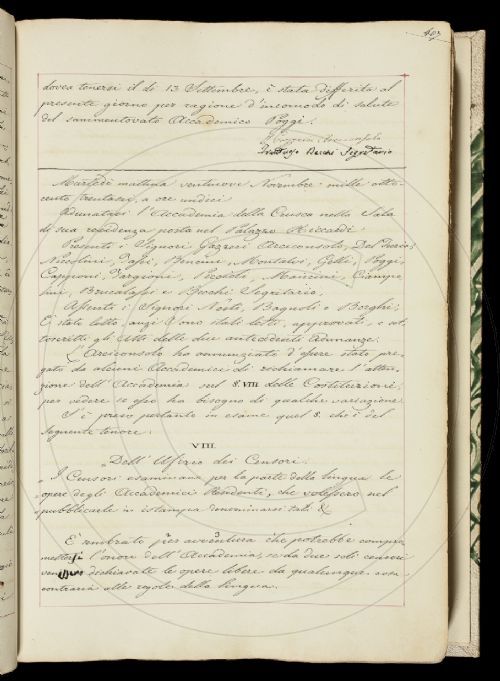 dovea tenersi il dì 13 Settembre, è stata differita al
presente giorno per ragione d'incomodo di salute
del sammentovato Accademico Poggi.
Arciconsolo
Becchi Segretario
Martedì mattina ventinove Novembre mille otto-
cento trentasei, a ore undici
Adunatasi l'Accademia della Crusca nella Sala
di sua residenza posta nel Palazzo Riccardi
Presenti i Signori Gazzeri Arciconsolo, Del Furia,
Niccolini, Tassi, Bencini, Montalvi, Gelli, Poggi,
Capponi, Targioni, Mancini, Ciampo-
lini, Brucalassi e Becchi Segretario,
Assenti i Signori Nesti, Bagnoli e Borghi;
È stato letto, anzi sono stati letti, approvati, e sot-
toscritti gli Atti delle due antecedenti Adunanze;
L'Arciconsolo ha annunziato d'essere stato pre-
gato da alcuni Accademici di richiamare l'atten-
zione dell'Accademia sul §. VIII delle Costituzioni,
per vedere se esso ha bisogno di qualche variazione
S'è preso pertanto in esame quel §. che è del
seguente tenore:
VIII
„Dell'Ufizio dei Censori.
„I Censori esaminano per la parte della lingua le
„opere degli Accademici Residenti, che volessero nel
„pubblicarle in istampa denominarsi tali &
È sembrato per avventura che potrebbe compro-
mettersi l'onore dell'Accademia, se da due soli censori
dichiarate le opere libere da qualunque cosa
contraria alle regole della lingua.